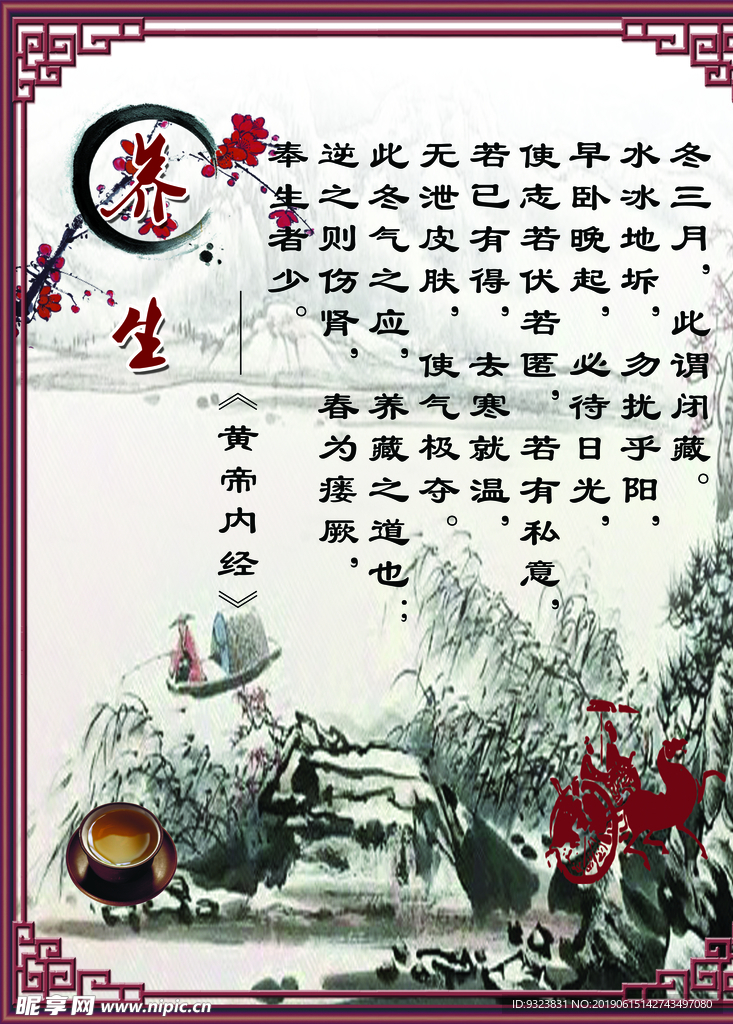 养生
冬三月，此谓闭藏。
水冰地坼，勿扰乎阳，
早卧晚起，必待日光，
使志若伏若匿，若有私意，
若已有得，去寒就温，
无泄皮肤，使气极夺。
此冬气之应，养藏之道也；
逆之则伤肾，春为痿厥，
奉生者少。
——《黄帝内经》
昵享网 www.nipic.cn
ID:9323831 NO:20190615142743497080